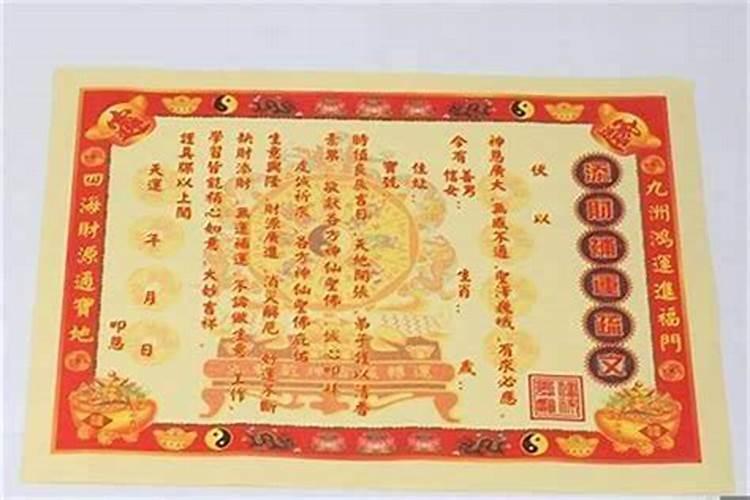 九洲鴻運進福門
添財補運疏文
伏以
神恩廣大 無感不通 聖澤巍峨 有求必應
今有善男信女： 生肖： 歲：
住址：
寶號
時值良辰吉日 天地開張 弟子謹以清香
素果 敬獻各方神仙聖佛 誠心叩拜
虔誠祈求 各方神仙聖佛庇佑
生意興隆 財源廣進 消災解厄 好運不斷
缺財添財 無運補運 不論做生意 工作、
學習皆能稱心如意 大妙吉祥
謹具疏以上聞
天運 年 月 日 叩懇
四海財源通寶地